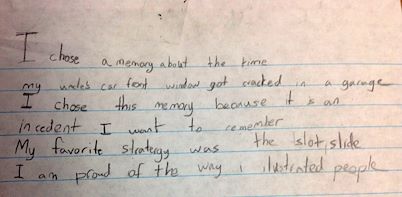 I chose a memory about the time
my uncle's car font window got cracked in a garage
I chose this memory because it s an
incedent I want to remember
My favorite stratergy was the slot, slide
I am proud of the way i illustrated people